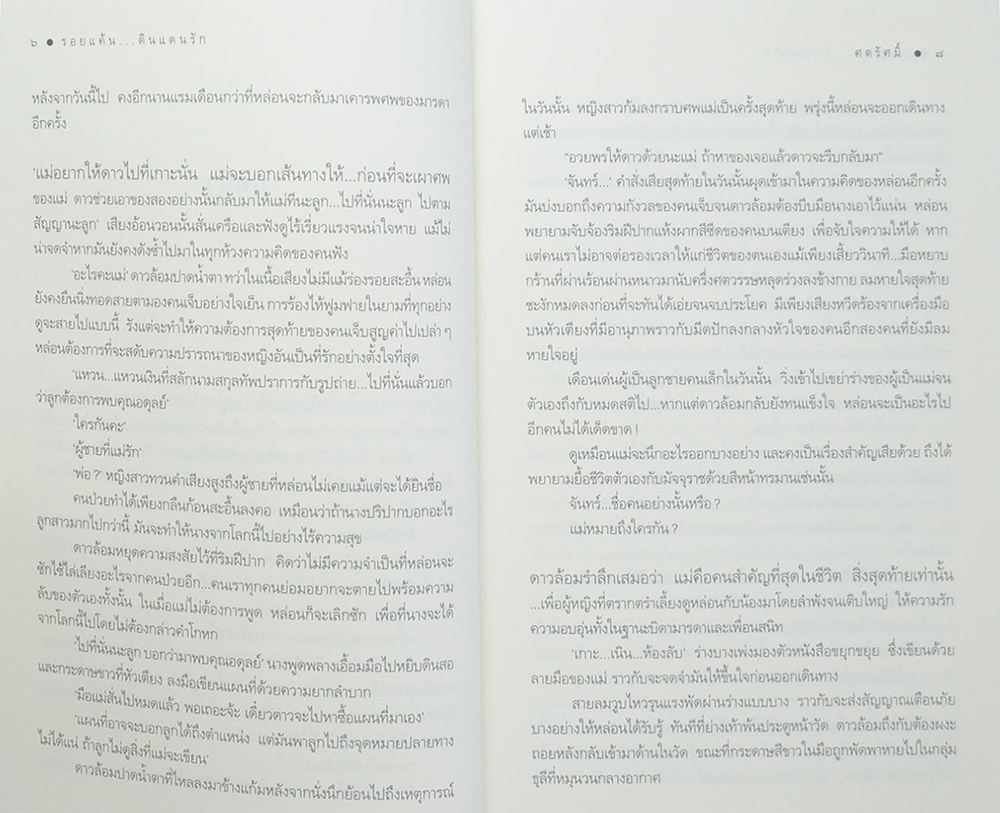 ๖ ● รอยแค้น...ดินแดนรัก
หลังจากวันนี้ไป คงอีกนานแรมเดือนกว่าที่หล่อนจะกลับมาเคารพศพของมารดา
อีกครั้ง
‘แม่อยากให้ดาวไปที่เกาะนั่น แม่จะบอกเส้นทางให้...ก่อนที่จะเผาศพ
ของแม่ ดาวช่วยเอาของสองอย่างนั้นกลับมาให้แม่ทีนะลูก...ไปที่นั่นนะลูก ไปตาม
สัญญานะลูก’ เสียงอ้อนวอนนั้นสั่นเครือและฟังดูไร้เรี่ยวแรงจนน่าใจหาย แม้ไม่
น่าจดจำหากมันยังคงดังซ้ำไปมาในทุกห้วงความคิดของคนฟัง
‘อะไรคะแม่’ ดาวล้อมปาดน้ำตา ทว่าในเนื้อเสียงไม่มีแม้ร่องรอยสะอื้น หล่อน
ยังคงยืนนิ่งทอดสายตามองคนเจ็บอย่างใจเย็น การร้องไห้ฟูมฟายในยามที่ทุกอย่าง
ดูจะสายไปแบบนี้ รังแต่จะทำให้ความต้องการสุดท้ายของคนเจ็บสูญค่าไปเปล่าๆ
หล่อนต้องการที่จะสดับความปรารถนาของหญิงอันเป็นที่รักอย่างตั้งใจที่สุด
‘แหวน...แหวนเงินที่สลักนามสกุลทัพปราการกับรูปถ่าย...ไปที่นั่นแล้วบอก
ว่าลูกต้องการพบคุณอดุลย์’
‘ใครกันคะ’
‘ผู้ชายที่แม่รัก’
‘พ่อ?’ หญิงสาวทวนคำเสียงสูงถึงผู้ชายที่หล่อนไม่เคยแม้แต่จะได้ยินชื่อ
คนป่วยทำได้เพียงกลืนก้อนสะอื้นลงคอ เหมือนว่าถ้านางปริปากบอกอะไร
ลูกสาวมากไปกว่านี้ มันจะทำให้นางจากโลกนี้ไปอย่างไร้ความสุข
ดาวล้อมหยุดความสงสัยไว้ที่ริมฝีปาก คิดว่าไม่มีความจำเป็นที่หล่อนจะ
ซักไซ้ไล่เลียงอะไรจากคนป่วยอีก...คนเราทุกคนย่อมอยากจะตายไปพร้อมความ
ลับของตัวเองทั้งนั้น ในเมื่อแม่ไม่ต้องการพูด หล่อนก็จะเลิกซัก เพื่อที่นางจะได้
จากโลกนี้ไปโดยไม่ต้องกล่าวคำโกหก
‘ไปที่นั่นนะลูก บอกว่ามาพบคุณอดุลย์’ นางพูดพลางเอื้อมมือไปหยิบดินสอ
และกระดาษขาวที่หัวเตียง ลงมือเขียนแผนที่ด้วยความยากลำบาก
‘มือแม่สั่นไปหมดแล้ว พอเถอะจ้ะ เดี๋ยวดาวจะไปหาซื้อแผนที่มาเอง’
‘แผนที่อาจจะบอกลูกได้ถึงตำแหน่ง แต่มันพาลูกไปถึงจุดหมายปลายทาง
ไม่ได้แน่ ถ้าลูกไม่ดูสิ่งที่แม่จะเขียน’
ดาวล้อมปาดน้ำตาที่ไหลลงมาข้างแก้มหลังจากนั่งนึกย้อนไปถึงเหตุการณ์
ศตรัศมี ● ๗
ในวันนั้น หญิงสาวก้มลงกราบศพแม่เป็นครั้งสุดท้าย พรุ่งนี้หล่อนจะออกเดินทาง
แต่เช้า
“อวยพรให้ดาวด้วยนะแม่ ถ้าหาของเจอแล้วดาวจะรีบกลับมา”
‘จันทร์...’ คำสั่งเสียสุดท้ายในวันนั้นผุดเข้ามาในความคิดของหล่อนอีกครั้ง
มันบ่งบอกถึงความกังวลของคนเจ็บจนดาวล้อมต้องบีบมือนางเอาไว้แน่น หล่อน
พยายามจับจ้องริมฝีปากแห้งผากสีซีดของคนบนเตียง เพื่อจับใจความให้ได้ หาก
แต่คนเราไม่อาจต่อรองเวลาให้แก่ชีวิตของตนเองแม้เพียงเสี้ยววินาที...มือหยาบ
กร้านที่ผ่านร้อนผ่านหนาวมานับครึ่งศตวรรษหลุดร่วงลงข้างกาย ลมหายใจสุดท้าย
ชะงักหมดลงก่อนที่จะทันได้เอ่ยจนจบประโยค มีเพียงเสียงหวีดร้องจากเครื่องมือ
บนหัวเตียงที่มีอานุภาพราวกับมีดปักลงกลางหัวใจของคนอีกสองคนที่ยังมีลม
หายใจอยู่
เดือนเด่นผู้เป็นลูกชายคนเล็กในวันนั้น วิ่งเข้าไปเขย่าร่างของผู้เป็นแม่จน
ตัวเองถึงกับหมดสติไป...หากแต่ดาวล้อมกลับยังทนแข็งใจ หล่อนจะเป็นอะไรไป
อีกคนไม่ได้เด็ดขาด!
ดูเหมือนแม่จะนึกอะไรออกบางอย่าง และคงเป็นเรื่องสำคัญเสียด้วย ถึงได้
พยายามยื้อชีวิตตัวเองกับมัจจุราชด้วยสีหน้าทรมานเช่นนั้น
จันทร์...ชื่อคนอย่างนั้นหรือ?
แม่หมายถึงใครกัน?
ดาวล้อมรำลึกเสมอว่า แม่คือคนสำคัญที่สุดในชีวิต สิ่งสุดท้ายเท่านั้น
...เพื่อผู้หญิงที่ตรากตรำเลี้ยงดูหล่อนกับน้องมาโดยลำพังจนเติบใหญ่ ให้ความรัก
ความอบอุ่นทั้งในฐานะบิดามารดาและเพื่อนสนิท
‘เกาะ...เนิน...ห้องลับ’ ร่างบางเพ่งมองตัวหนังสือขยุกขยุย ซึ่งเขียนด้วย
ลายมือของแม่ ราวกับจะจดจำมันให้ขึ้นใจก่อนออกเดินทาง
สายลมวูบไหวรุนแรงพัดผ่านร่างแบบบาง ราวกับจะส่งสัญญาณเตือนภัย
บางอย่างให้หล่อนได้รับรู้ ทันทีที่ย่างเท้าพ้นประตูหน้าวัด ดาวล้อมถึงกับต้องผงะ
ถอยหลังกลับเข้ามาด้านในวัด ขณะที่กระดาษสีขาวในมือถูกพัดพาหายไปในกลุ่ม
ธุลีที่หมุนวนกลางอากาศ